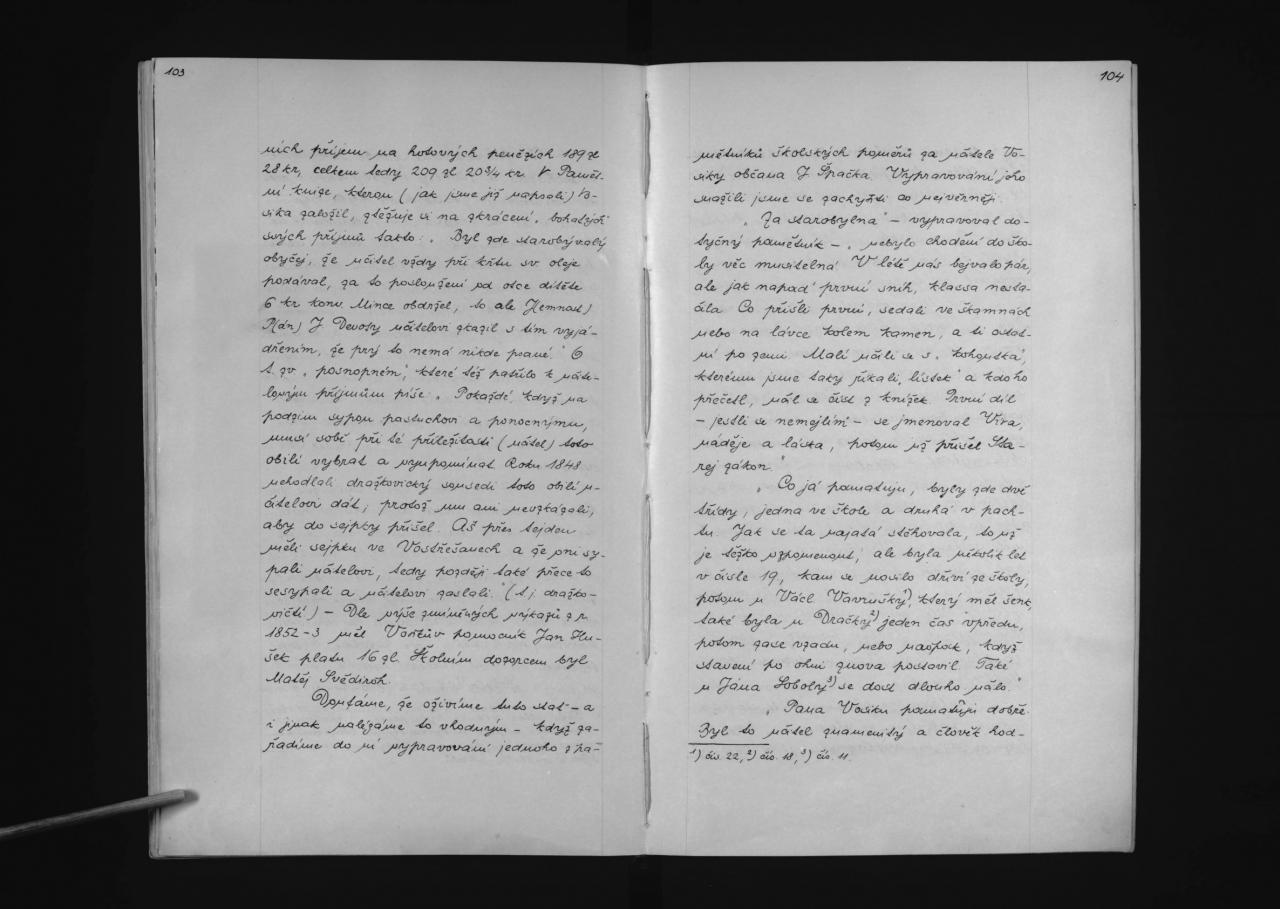 103
ních příjem na hotových penězích 189 zl
28 kr, celkem tedy 209 zl 20 3/4 kr. V Pamět-
ní knize, kterou (jak jsme již napsali) Vo-
sika založil, stěžuje si na zkrácení „bohatých"
svých příjmů takto: „Byl zde starobývalý
obyčej, že učitel vždy při křtu sv. oleje
podával, za to posloužení od otce dítěte
6 kr konv. Mince obdržel, to ale (Jemnost)
Pán) J. Devoty učitelovi zkazil s tím vyjá-
dřením, že prý to nemá nikde psané." O
t. zv. „posnopném", které též patřilo k učite-
lovým příjmům píše: „Pokaždé, když na
podzim sypou pastuchovi a ponocnýmu,
musí sobě při té příležitosti (učitel) toto
obilí vybrat a vyupomínat. Roku 1848
nehodlali dražkovický sousedi toto obilí u-
čitelovi dát; protož mu ani nevzkázali,
aby do sejpky přišel. Až přes tejden
měli sejpku ve Vostřešanech a že oni sy-
pali učitelovi, tedy později také přece to
sesypali a učitelovi zaslali." (t. j. dražko-
vičtí) – Dle výše zmíněných výkazů z r.
1852-3 měl Vošikův pomocník Jan Hu-
šek platu 16 zl. Školním dozorcem byl
Matěj Svědiroh.
Doufáme, že oživíme tuto stať – a
i jinak nalézáme to vhodným – když za-
řadíme do ní vypravování jednoho z pa-
104
mětníků školských poměrů za učitele Vo-
siky občana J. Špačka. Vypravování jeho
snažili jsme se zachytiti co nejvěrněji.
„Za starobylna" – vypravoval do-
tyčný pamětník – „nebylo chodění do ško-
ly věc musitelná. V létě nás bejvalo pár,
ale jak napad' první sníh, klassa nesta-
čila. Co přišli první, sedali ve škamnách
nebo na lávce kolem kamen, a ti ostat-
ní po zemi. Malí učili se s „kohoutka",
kterému jsme taky říkali „lístek" a kdo ho
přečetl, učil se číst z knížek. První díl
– jestli se nemejlím – se jmenoval Víra,
náděje a láska, potom už přišel Sta-
rej zákon."
„Co já pamatuju, byly zde dvě
třídy, jedna ve škole a druhá v pach-
tu. Jak se ta najatá stěhovala, to už
je těžko vzpomenout, ale byla několik let
v čísle 19, kam se nosilo dříví ze školy,
potom u Václ. Vavrušky¹), který měl šenk,
také byla u Dračky²) jeden čas vpředu,
potom zase vzadu, nebo naopak, když
stavení po ohni znova postavil. Také
u Jána Soboly³) se dost dlouho učilo."
„Pana Vosiku pamatuju dobře.
Byl to učitel znamenitý a člověk hod-
1) čís. 22, 2) čís. 18, 3) čís. 11.